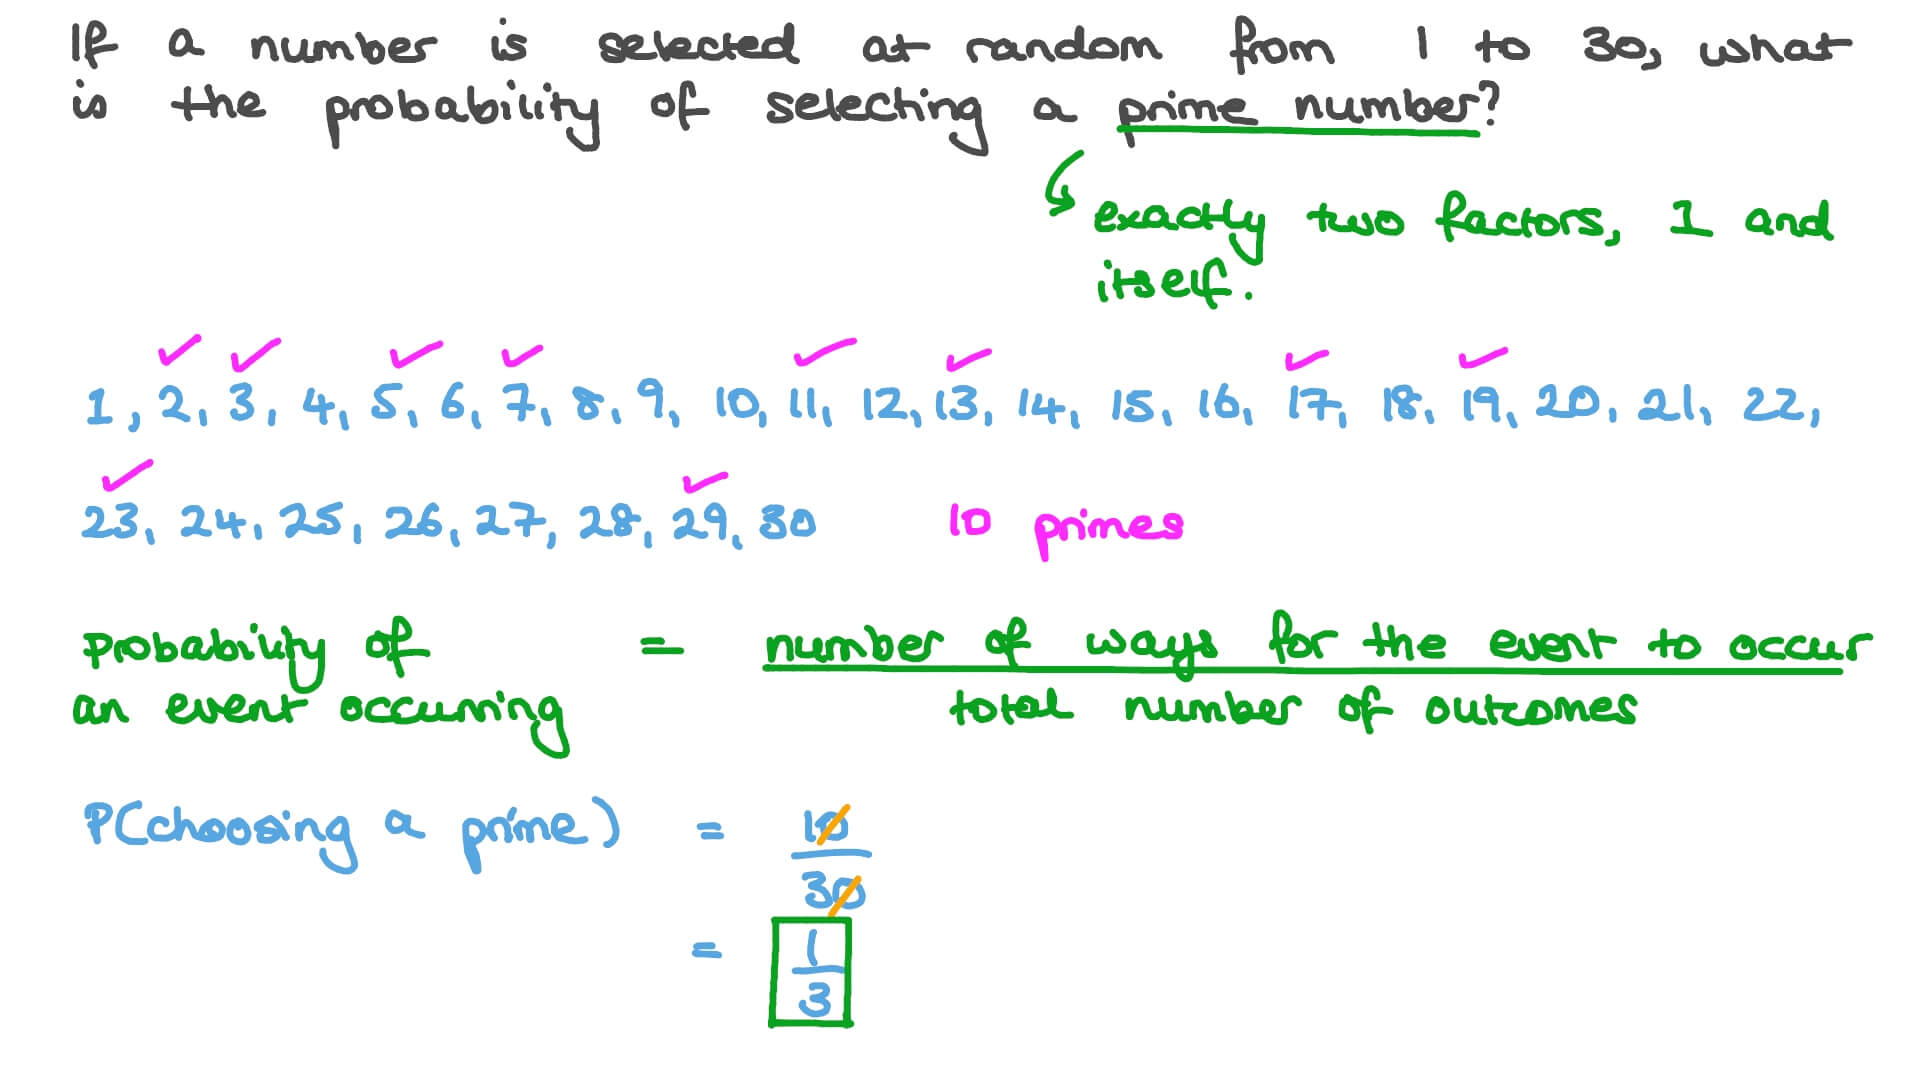 If a number is selected at random from 1 to 30, what
is the probability of selecting a prime number?
exactly two factors, 1 and
itself.
1, 2, 3, 4, 5, 6, 7, 8, 9, 10, 11, 12, 13, 14, 15, 16, 17, 18, 19, 20, 21, 22,
23, 24, 25, 26, 27, 28, 29, 30 10 primes
Probability of = number of ways for the event to occur
an event occurring total number of outcomes
P(choosing a prime) = 10
30
= 1
3